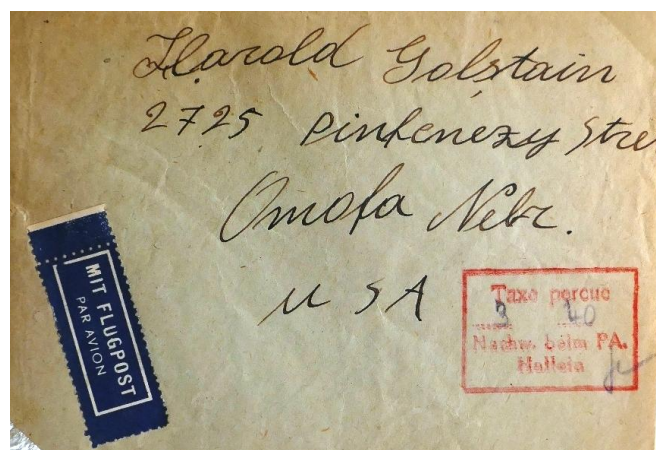 Harold Golstain
2725 Pinkenezy Stre
Omofa Nebr.
U S A
MIT FLUGPOST
PAR AVION
Taxe percue
3 40
Nachw. beim PA.
Hallein